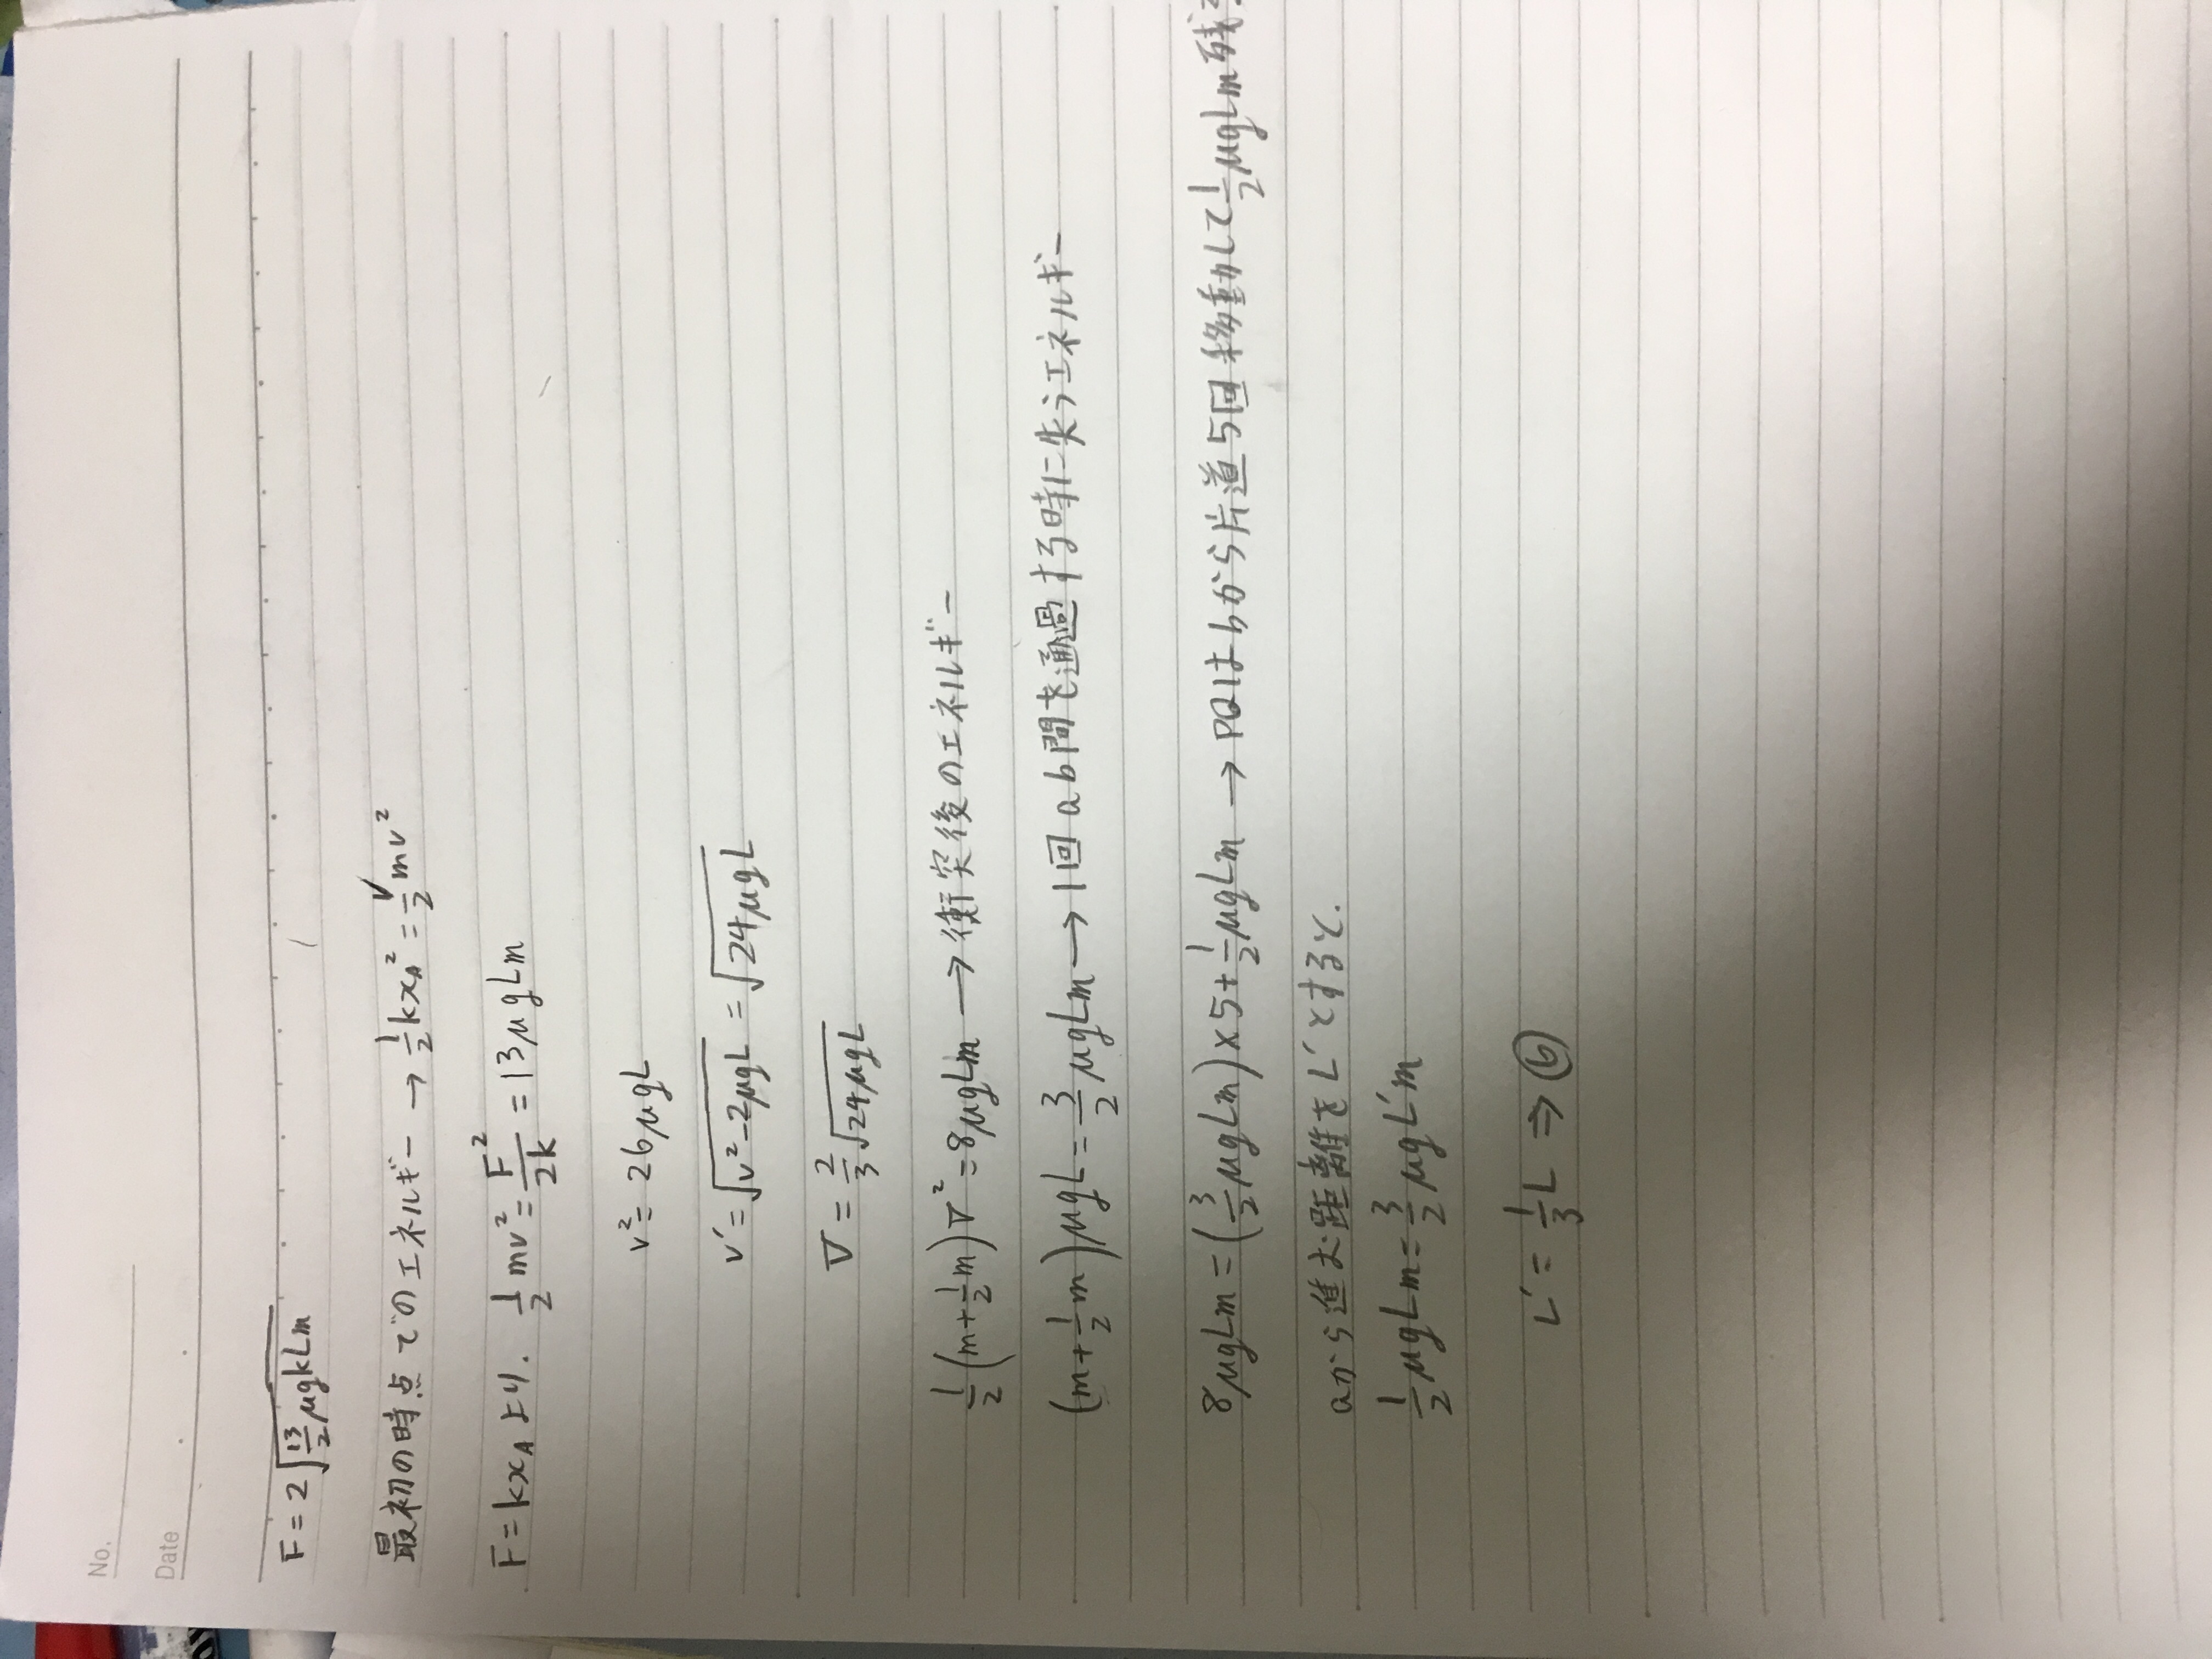 No.
Date
F=2√(13/2 μgkLm)
最初の時点でのエネルギー → 1/2 kx_A² = 1/2 mv²
F=kx_Aより. 1/2 mv² = F²/2k = 13μgLm
v²=26μgL
v'=√(v²-2μgL) = √(24μgL)
V = 2/3 √(24μgL)
1/2 (m+1/2 m)V² = 8μgLm → 衝突後のエネルギー
(m+1/2 m)μgL = 3/2 μgLm → 1回ab間を通過する時に失うエネルギー
8μgLm = (3/2 μgLm)×5+1/2 μgLm → PQはbから片道5回移動して1/2 μgLm残
aから進む距離をL'とすると.
1/2 μgLm = 3/2 μgL'm
L' = 1/3 L ⇒ ⑥